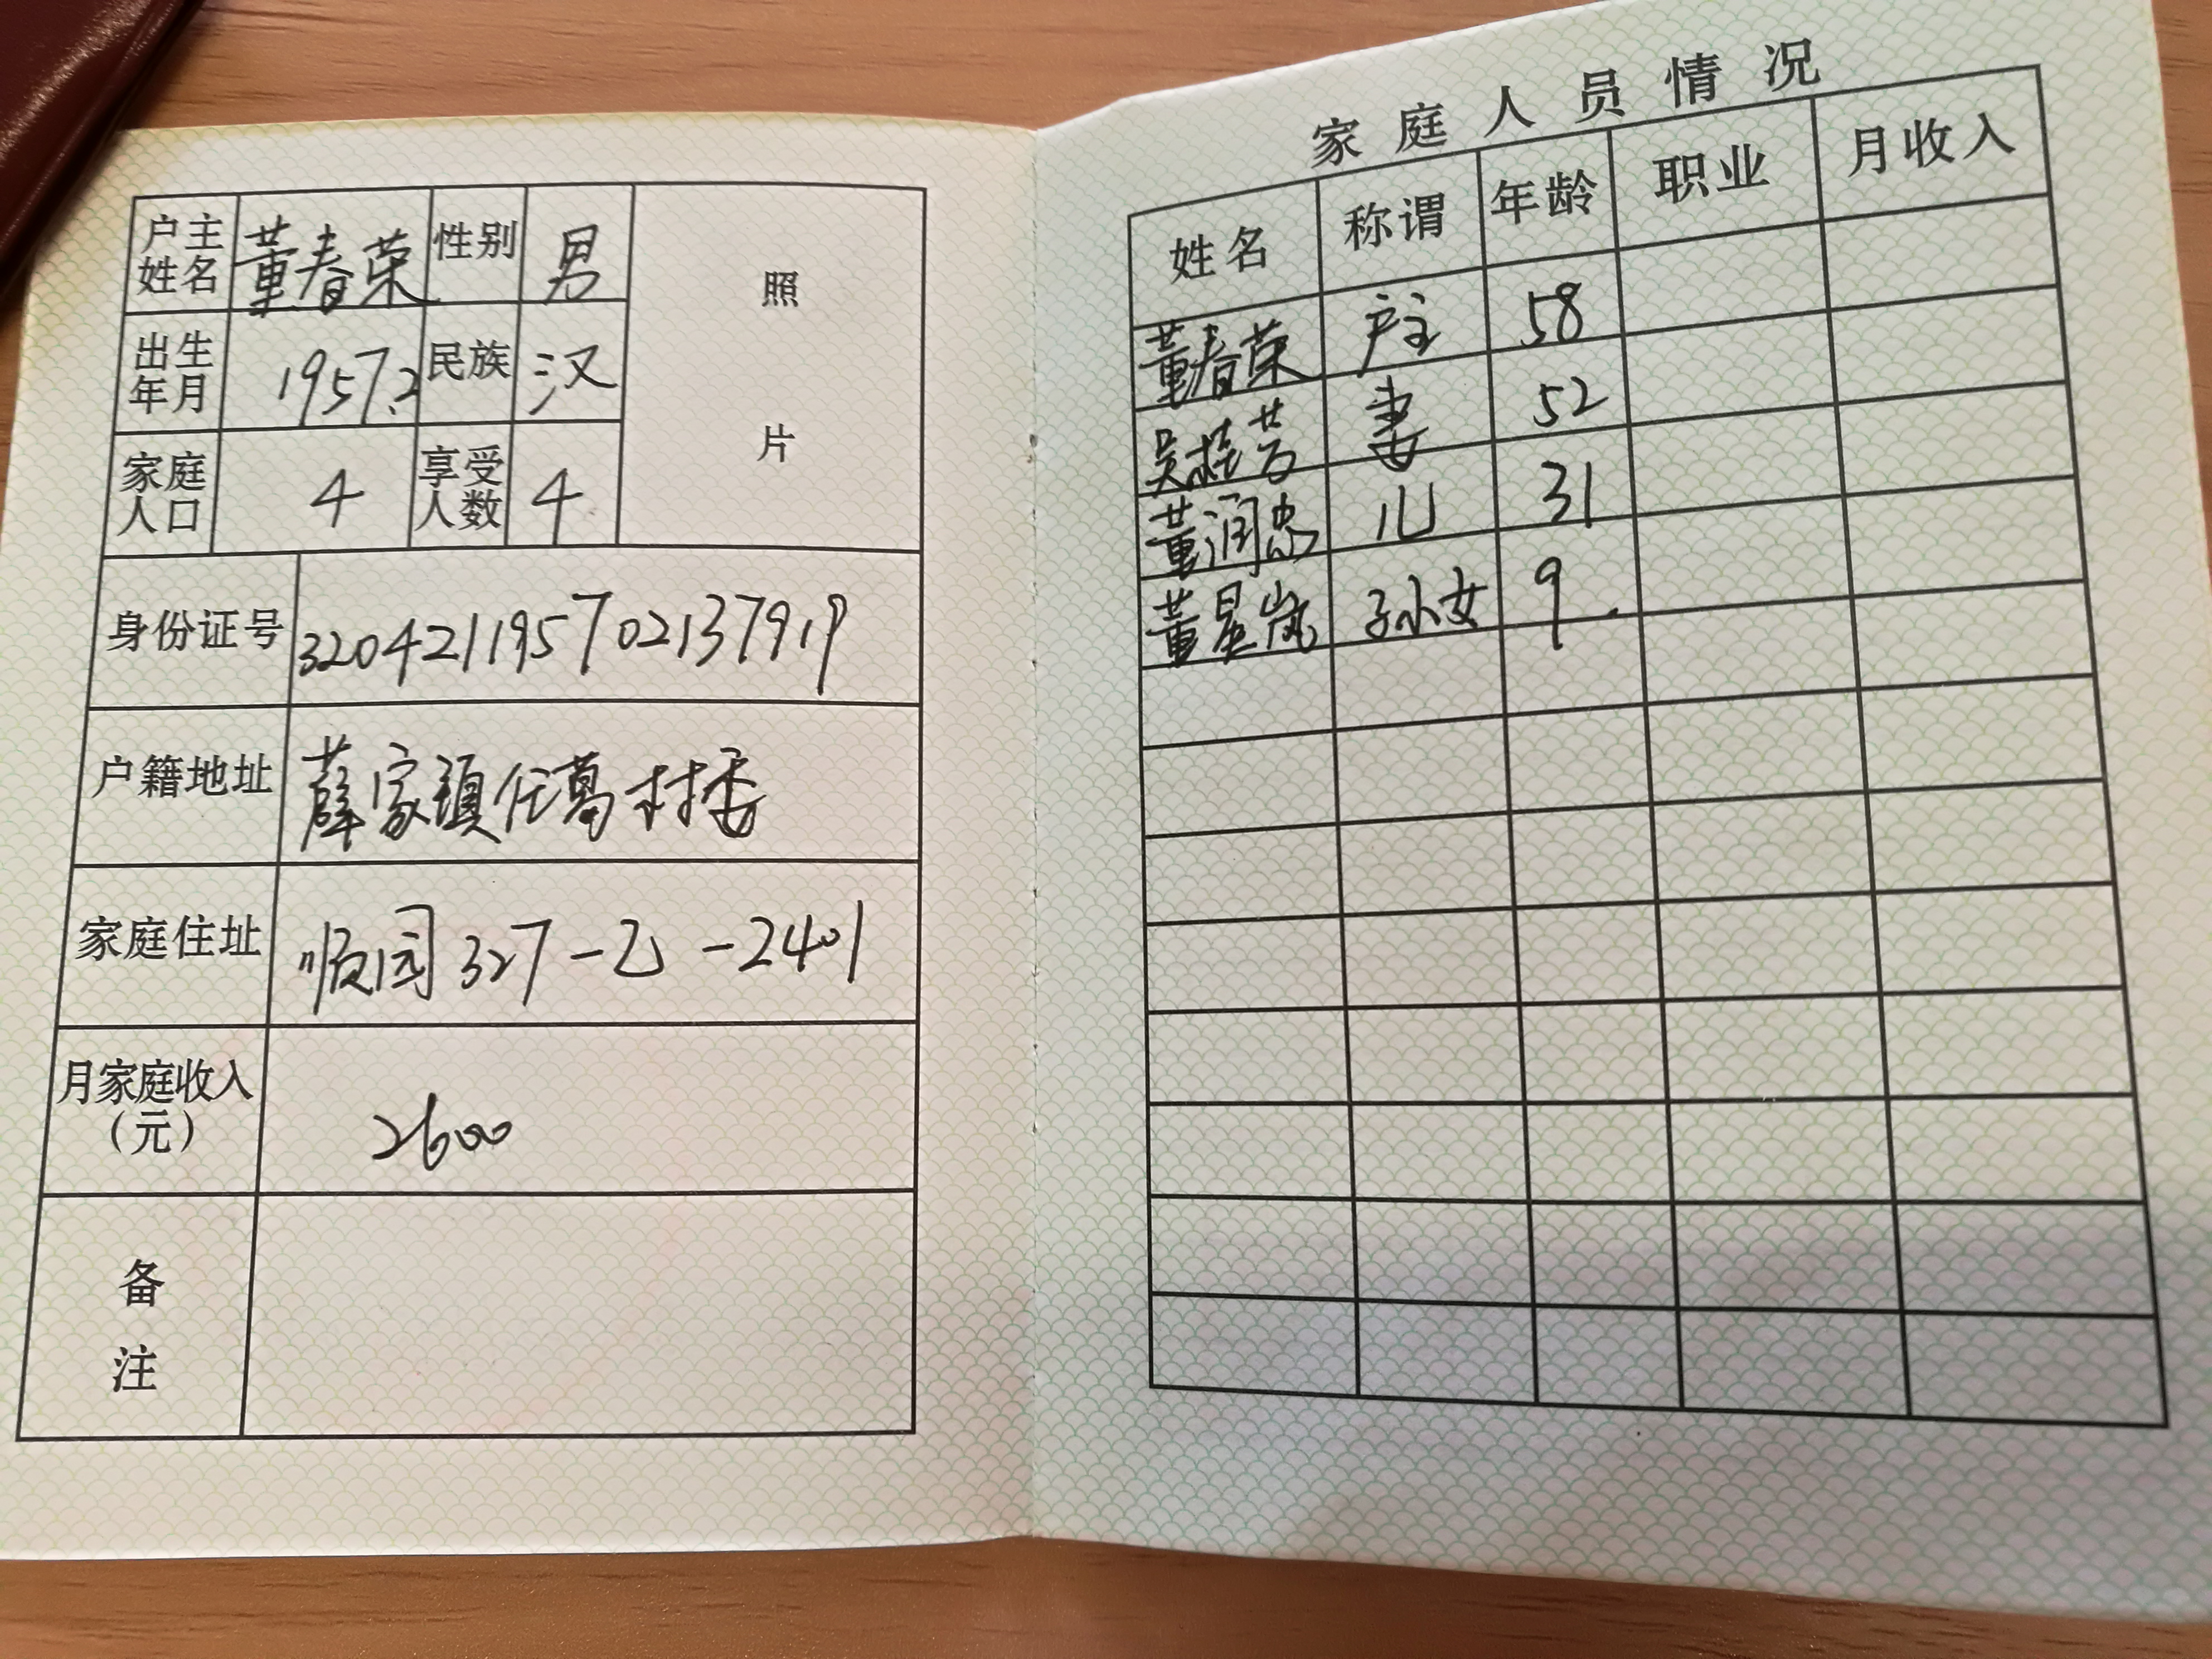 户主姓名 董春荣 性别 男 照片
出生年月 1957.2 民族 汉
家庭人口 4 享受人数 4
身份证号 320421195702137919
户籍地址 薛家镇任葛村委
家庭住址 顺园327-乙-2401
月家庭收入(元) 2600
备注
家庭人员情况
姓名 称谓 年龄 职业 月收入
董春荣 户主 58
吴桂芳 妻 52
董润忠 儿 31
董星岚 孙女 9